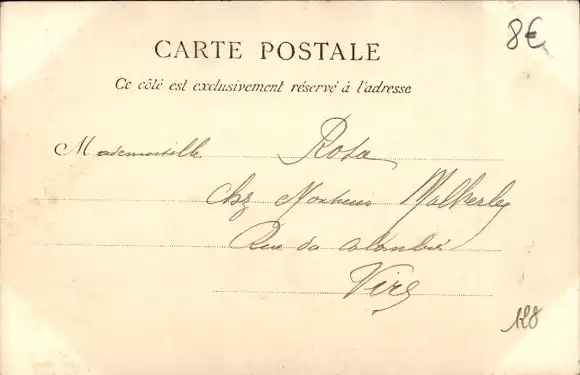 8€
CARTE POSTALE
Ce côté est exclusivement réservé à l'adresse
Mademoiselle Rosa
chez Monsieur Malherbe
Rue du Calvados
Vire
128